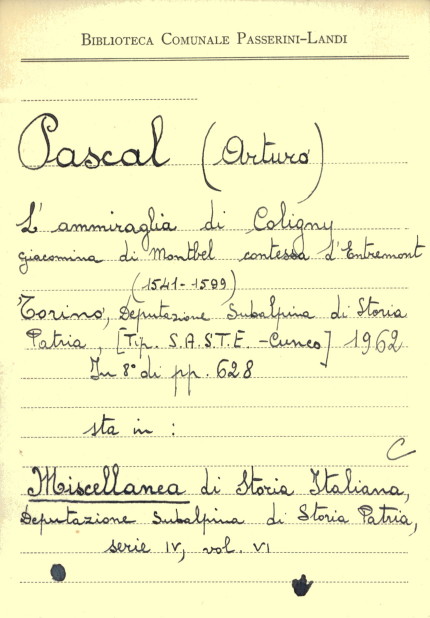 BIBLIOTECA COMUNALE PASSERINI-LANDI
Pascal (Arturo)
L'ammiraglia di Coligny
Giacomina di Montbel contessa d'Entremont
(1541-1599)
Torino, Deputazione Subalpina di Storia
Patria, [Tip. S.A.S.T.E. - Cuneo] 1962
In 8° di pp. 628
sta in :
C
Miscellanea di Storia Italiana,
Deputazione Subalpina di Storia Patria,
serie IV, vol. VI